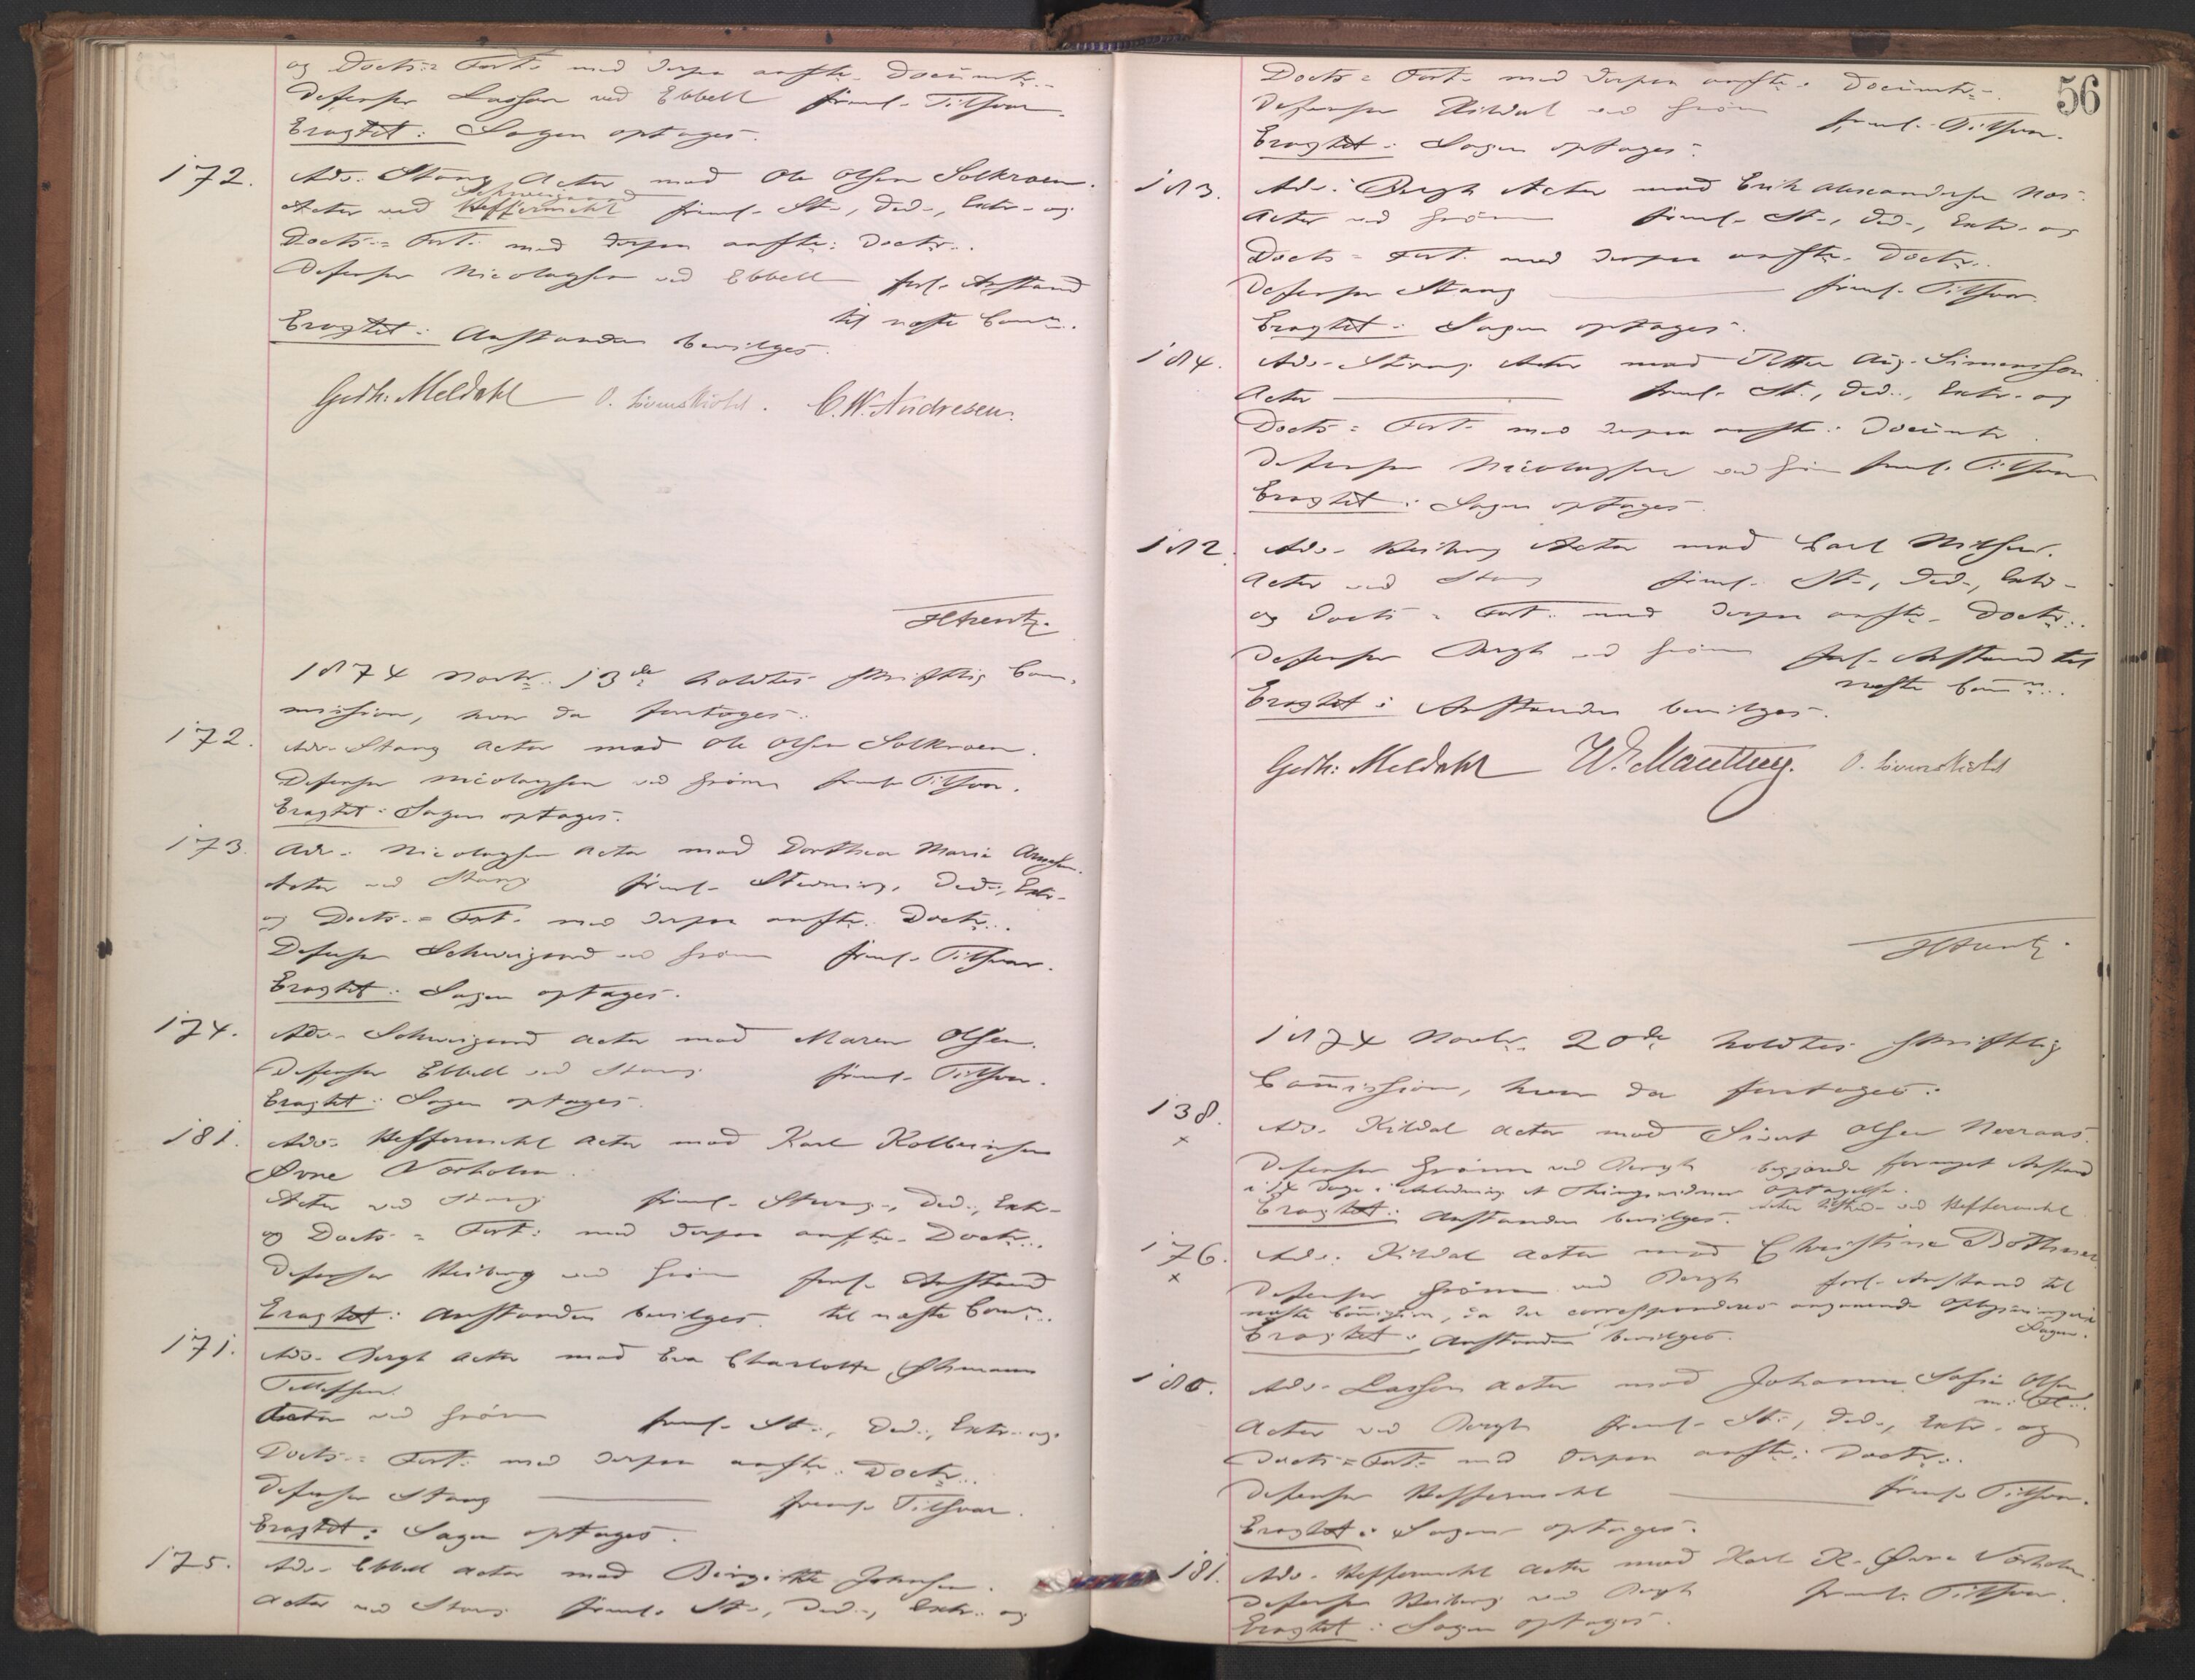 og Docts = Fort. med derpaa anfte. Documtr.
Defensor Lasson ved Ebbell freml. Tilsvar.
Eragtet: Sagen optages.
172. Adv. Stang Actor mod Ole Olsen Solkroen.
Schweigaard
Actor ved Heffermehl freml. St., Ded., Extr. og
Docts = Fort. med derpaa anfte. Doctr.
Defensor Nicolaysen ved Ebbell forl. Anstand
til næste Comn.
Eragtet: Anstanden bevilges.
Gedh: Meldahl O. Løvenskiold. C.W. Andresen.
1874 Novbr. 13de holdtes skriftlig Com-
mission, hvor da foretoges:
172. Adv. Stang Actor mod Ole Olsen Solkroen.
Defensor Nicolaysen ved Grønn freml. Tilsvar.
Eragtet: Sagen optages.
173. Adv. Nicolaysen Actor mod Dorthea Marie
Actor ved Stang freml. Stevning, Ded., Extr.
og Docts. = Fort. med derpaa anfte. Doctr.
Defensor Schweigaard ved Grønn freml. Tilsvar.
Eragtet: Sagen optages.
174. Adv. Schweigaard Actor mod Maren Olsen.
Defensor Ebbell ved Stang freml. Tilsvar.
Eragtet: Sagen optages.
181. Adv. Heffermehl Actor mod Karl Kolbeinsen
Øvre Norholm.
Actor ved Stang freml. Stevng., Ded., Extr.
og Docts = Fort. med derpaa anfte. Doctr.
Defensor Heiberg ved Grønn forl. Anstand
Eragtet: Anstanden bevilges. til næste Comn.
171. Adv. Bergh Actor mod Eva Charlotte
Tellefsen.
Actor ved Grønn freml. St., Ded., Extr. og
Docts = Fort. med derpaa anfte. Doctr.
Defensor Stang freml. Tilsvar.
Eragtet: Sagen optages.
175. Adv. Ebbell Actor mod Birgitte Johnsen.
Actor ved Stang freml. St., Ded., Extr. og
56
Docts = Fort. med derpaa anfte. Documtr.
Defensor Kildal ved Grønn freml. Tilsvar.
Eragtet: Sagen optages.
183. Adv. Bergh Actor mod Erik Alexandersen Nos.
Actor ved Grønn freml. St., Ded., Extr. og
Docts = Fort. med derpaa anfte. Doctr.
Defensor Stang freml. Tilsvar.
Eragtet: Sagen optages.
184. Adv. Stang Actor mod Petter Aug. Simonsson.
Actor freml. St., Ded., Extr. og
Docts = Fort. med derpaa anfte. Documtr.
Defensor Nicolaysen ved Grønn freml. Tilsvar
Eragtet: Sagen optages.
182. Adv. Heiberg Actor mod Carl Nilsen.
Actor ved Stang freml. St., Ded., Extr.
og Docts = Fort. med derpaa anfte. Doctr.
Defensor Bergh ved Grønn forl. Anstand til
næste Comn.
Eragtet: Anstanden bevilges.
Gedh: Meldahl O. Løvenskiold
1874 Novbr. 20de holdtes skriftlig
Commission, hvor da foretoges:
138. Adv. Kildal Actor mod Sivert Olsen
Defensor Grønn ved Bergh begjærede forøget Anstand
i 14 Dage i Anledning af Thingsvidnes Optagelse.
Eragtet: Anstanden bevilges. Actor ved Heffermehl
176. Adv. Kildal Actor mod Christine Bothner
Defensor Grønn ved Bergh forl. Anstand til
næste Commission, da der corresponderes angaaende Oplysninger i
Sagen.
Eragtet: Anstanden bevilges.
180. Adv. Lasson Actor mod Johanne Sofie Olsen
m. Fl.
Actor ved Bergh freml. St., Ded., Extr. og
Docts = Fort. med derpaa anfte. Doctr.
Defensor Heffermehl freml. Tilsvar.
Eragtet: Sagen optages.
181. Adv. Heffermehl Actor mod Karl K. Øvre Norholm.
Defensor Heiberg ved Bergh freml. Tilsvar.
Eragtet: Sagen optages.